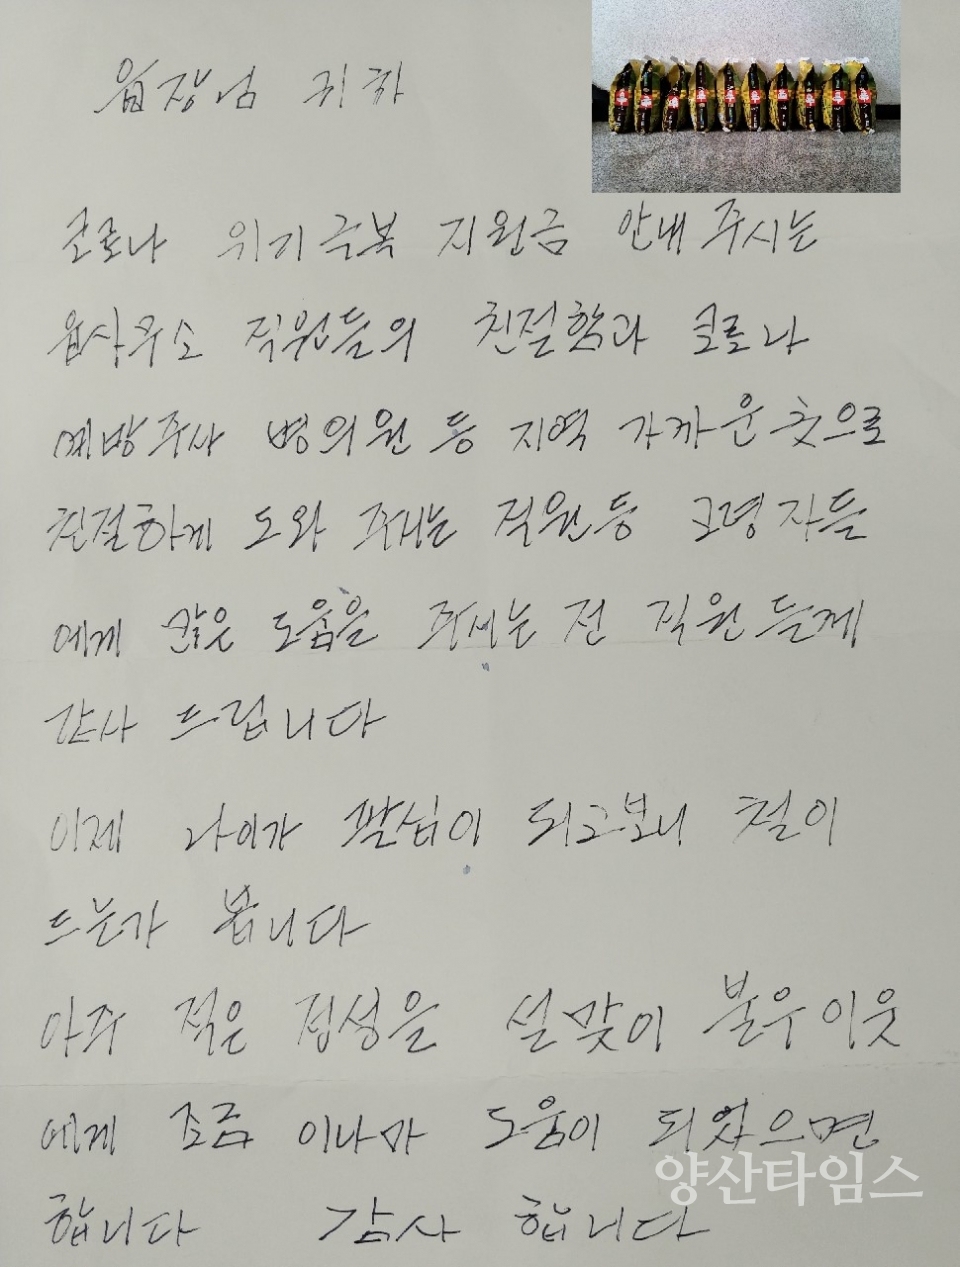 읍장님 귀하
코로나 위기극복 지원금 안내 주시는
읍사무소 직원들의 친절함과 코로나
예방주사 병의원 등 지역 가까운 곳으로
친절하게 도와 주시는 직원등 고령자들
에게 많은 도움을 주시는 전 직원 들께
감사 드립니다
이제 나이가 팔십이 되고보니 철이
드는가 봅니다
아주 적은 정성을 설 맞이 불우이웃
에게 조금 이나마 도움이 되었으면
합니다 감사 합니다
양산타임스